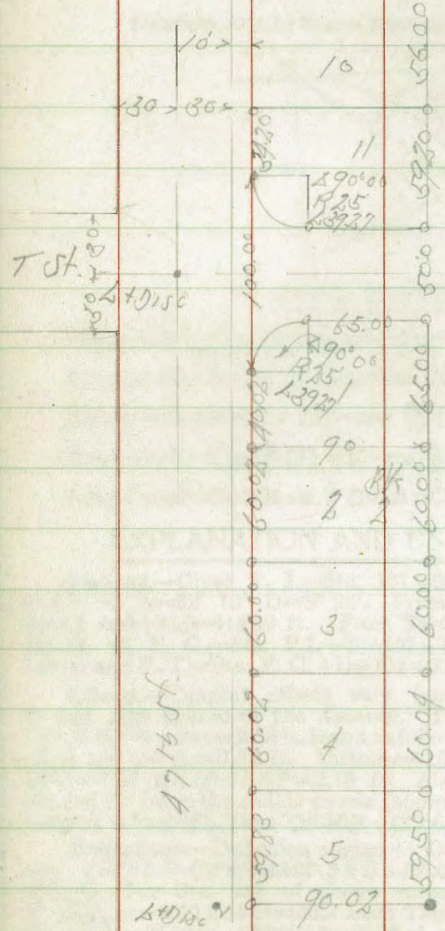 10
10
56.00
30 30
34.20
11
59.20
Δ90°00
R25
L3927
T St.
30 30
L+Disc
100.00
50.0
65.00
Δ90°00
R25
L3927
1
40.02
65.00
90
60.02
2
Bk
2
60.00
60.00
3
60.00
47th St.
60.02
4
60.04
59.83
5
59.50
L+Disc
90.02